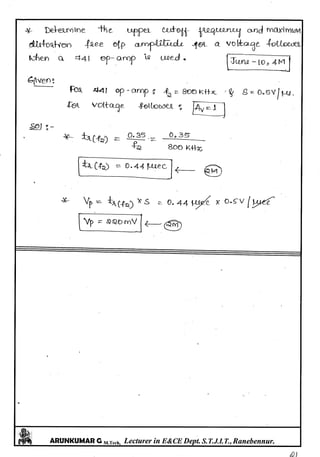 * Determine the upper cutoff frequency and maximum
distortion free o/p amplitude for a voltage follower
When a 741 op-amp is used. June - 10, 4M
Given:
For 741 op-amp : f2 = 800 KHz & S = 0.5V/μs.
For voltage follower : Av = 1
Sol :-
* tr(f2) = 0.35/f2 = 0.35/800 KHz
tr(f2) = 0.44 μsec ← 2M
* Vp = tr(f2) x S = 0.44 μsec x 0.5V/μsec
Vp = 220mV ← 2M
ARUNKUMAR G M.Tech, Lecturer in E&CE Dept. S.T.J.I.T., Ranebennur.